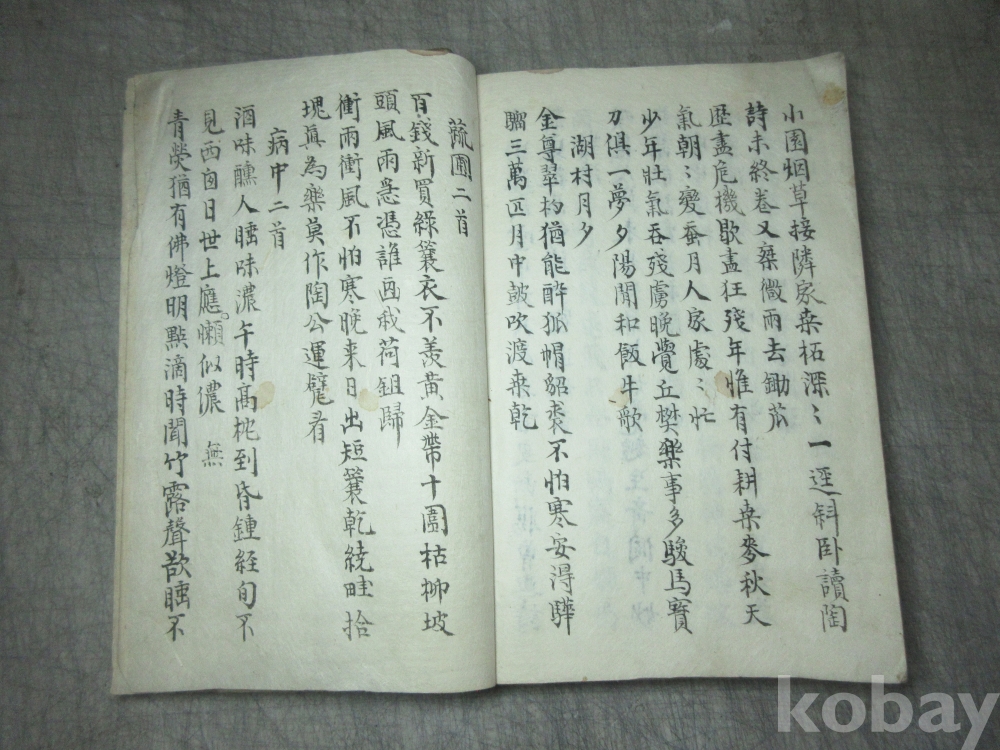 小園烟草接隣家桑柘深〻一逕斜卧讀陶
詩未終卷又乘微雨去鋤瓜
歷盡危機歇盡狂殘年惟有付耕桑麥秋天
氣朝〻變蚕月人家處〻忙
少年壯氣吞殘虜晚覺丘樊樂事多駿馬寶
刀俱一夢夕陽閒和飯牛歌
湖村月夕
金尊翠杓猶能醉狐帽貂裘不怕寒安得驊
騮三萬匹月中皷吹渡桑乾
蔬圃二首
百錢新買綠蓑衣不羨黃金帶十圍枯柳坡
頭風雨惡憑誰畫我荷鉏歸
衝雨衝風不怕寒晚来日出短蓑乾繞畦拾
塊眞為樂莫作陶公運甓看
病中二首
酒味醺人睡味濃午時高枕到昏鍾經旬不
見西囱日世上應懶似儂 無
青熒猶有佛燈明點滴時聞竹露聲欲睡不
kobay